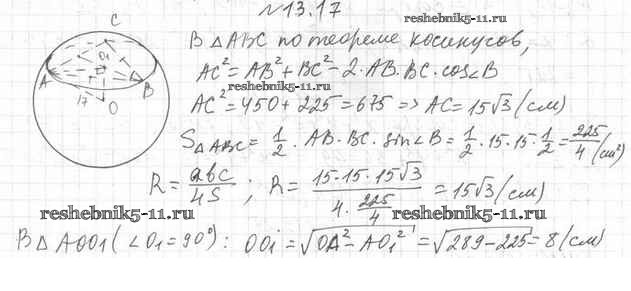 №13.17
reshebnik5-11.ru
C
O₁
A
B
17
O
В △ABC по теореме косинусов,
AC² = AB² + BC² - 2·AB·BC·cos∠B
AC² = 450 + 225 = 675 => AC = 15√3 (см)
S△ABC = 1/2 · AB · BC · sin∠B = 1/2 · 15 · 15 · 1/2 = 225/4 (см²)
R = abc/4S ; R = 15·15·15√3 / 4·225/4 = 15√3 (см)
reshebnik5-11.ru
reshebnik5-11.ru
В △AOO1 (∠O₁ = 90°): OO₁ = √OA² - AO₁² = √289-225 = 8 (см)